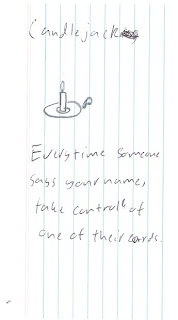 Candlejack
Everytime someone
says your name,
take control of
one of their cards.